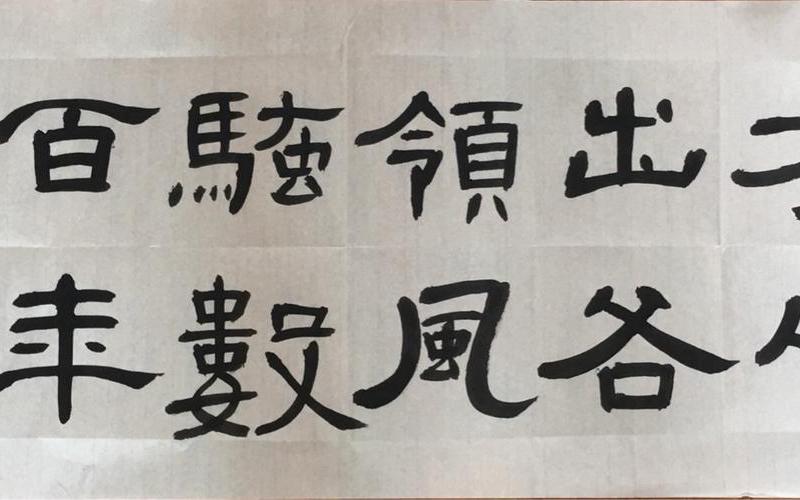 出各
領風
騷數
百年